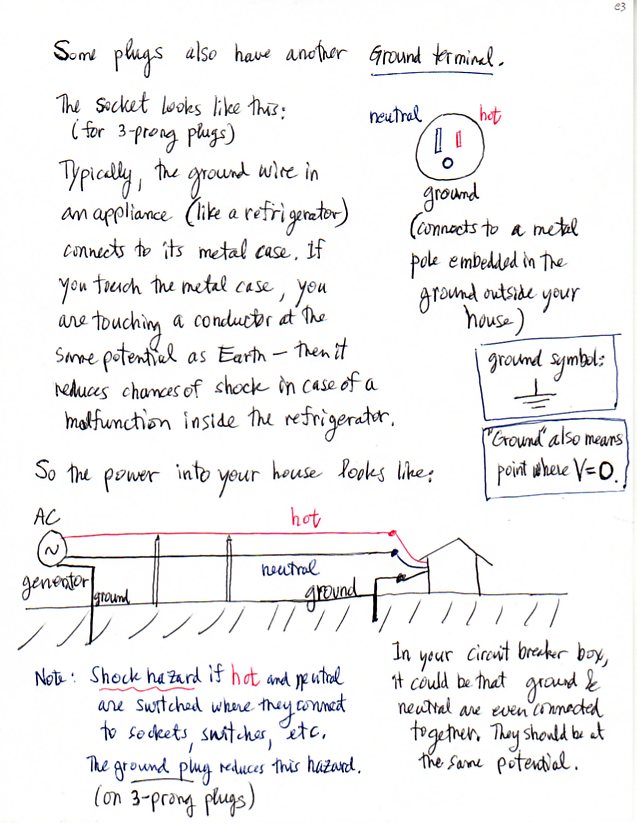 23
Some plugs also have another Ground terminal.
The socket looks like this:
(for 3-prong plugs)
neutral hot
ground
(connects to a metal
pole embedded in the
ground outside your
house)
Typically, the ground wire in
an appliance (like a refrigerator)
connects to its metal case. If
you touch the metal case, you
are touching a conductor at the
same potential as Earth – then it
reduces chances of shock in case of a
malfunction inside the refrigerator.
ground symbol:
"Ground" also means
point where V=0.
So the power into your house looks like:
AC
~
generator
hot
neutral
ground
ground
Note: Shock hazard if hot and neutral
are switched where they connect
to sockets, switches, etc.
The ground plug reduces this hazard.
(on 3-prong plugs)
In your circuit breaker box,
it could be that ground &
neutral are even connected
together. They should be at
the same potential.